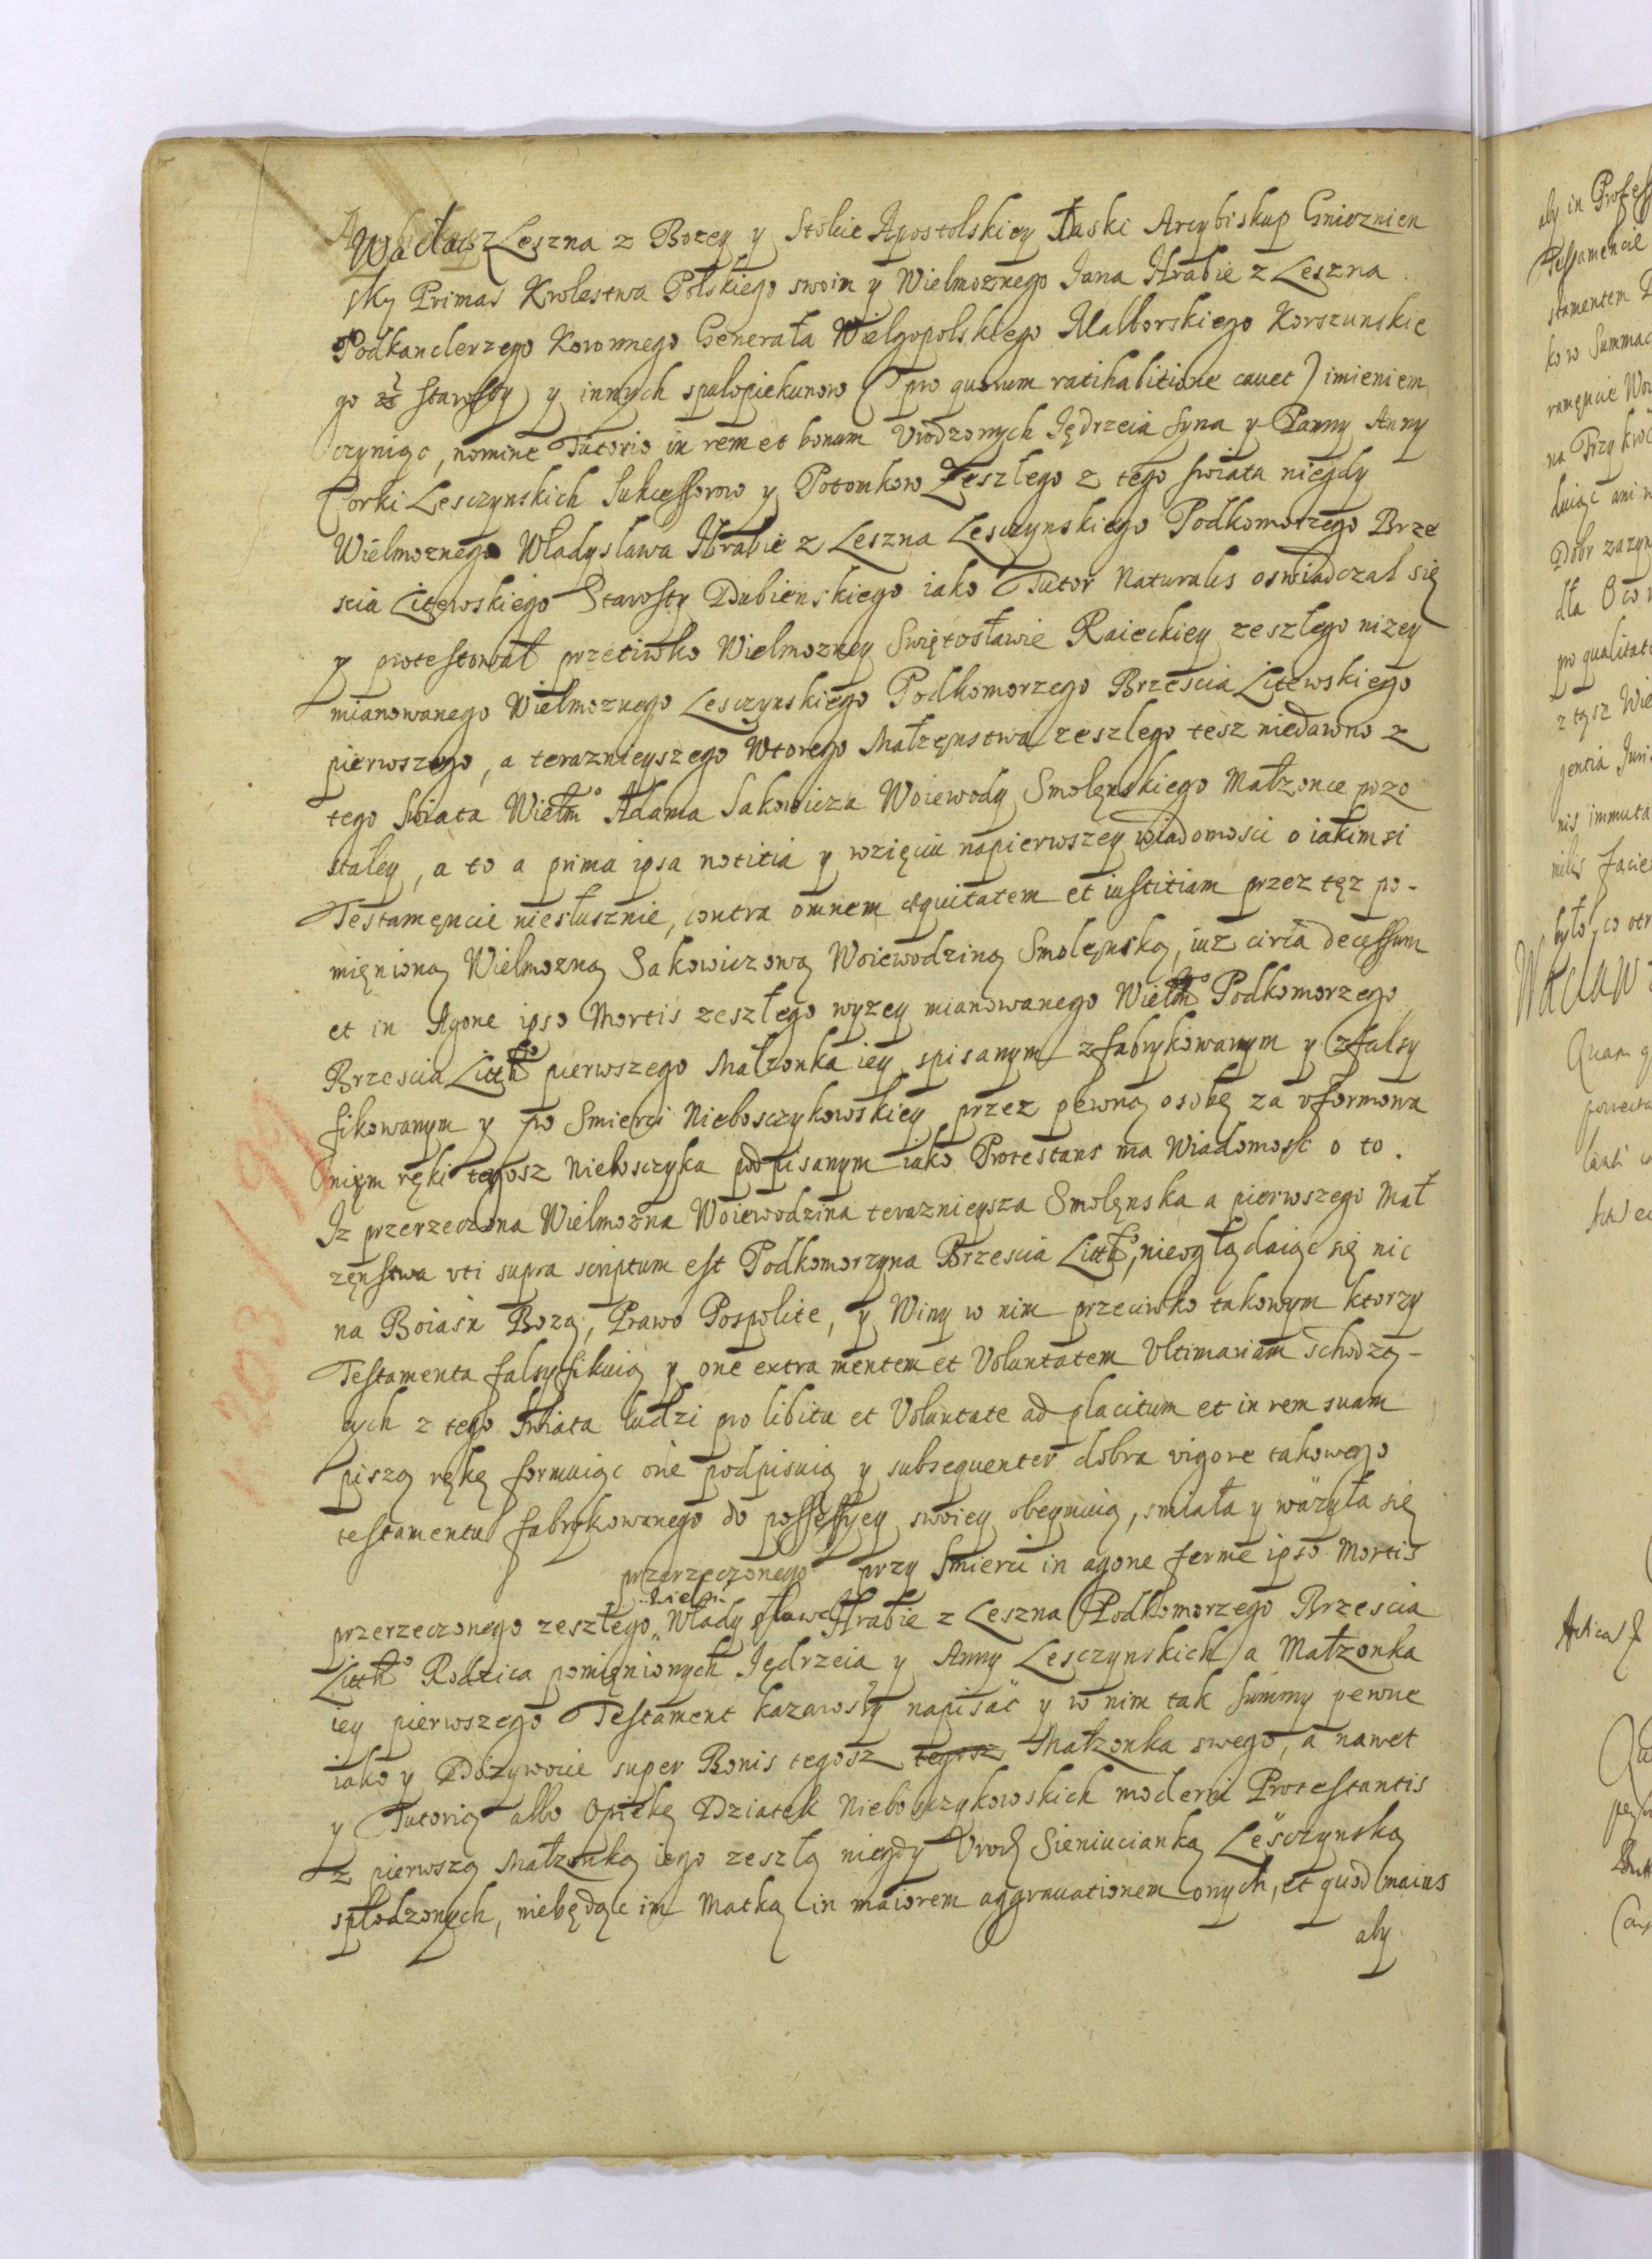 Wacław z Leszna z Bozey y Stolice Apostolskiey Łaski Arcybiskup Gnieznien
sky Primas Krolestwa Polskiego swoim y Wielmoznego Jana Hrabie z Leszna
Podkanclerzego Koronnego Generała Wielgopolskiego Malborskiego Korszunskie
go Starosty y innych spulopiekunow (pro quorum ratihabitione cauet) imieniem
czyniąc, nomine Tutorio in rem et bonum Vrodzonych Jędrzeia Syna y Panny Anny
Corki Lesczynskich Sukcessorow y Potomkow Zeszłego z tego swiata niegdy
Wielmoznego Władyslawa Hrabie z Leszna Lesczynskiego Podkomorzego Brze
scia Litewskiego Starosty Dubienskiego iako Tutor Naturalis oswiadczał się
y protestował przeciwko Wielmozney Swiętosławie Raieckiey zeszłego nizey
mianowanego Wielmoznego Lesczynskiego Podkomorzego Brzescia Litewskiego
pierwszego, a teraznieyszego Wtorego Małzęnstwa zeszlego tesz niedawno z
tego Swiata Wielmo Adama Sakowicza Woiewody Smolęnskiego Małzonce pozo
staley, a to a prima ipsa notitia y wzięciu napierwszey wiadomosci o iakimsi
Testamęncie niesłusznie, contra omnem æquitatem et iustitiam przez tęz po-
mięnioną Wielmozną Sakowiczową Woiewodziną Smolęnską, iuz circa decessum
et in Agone ipso Mortis zeszłego wyzey mianowanego Wielmo Podkomorzego
Brzescia Litto pierwszego Małzonka iey spisanym zfabrykowanym y zfalsy
fikowanym y po Smierci Nieboszczykowskiey przez pewną osobę za vformowa
nięm ręki tegosz Nieboszczyka podpisanym iako Protestans ma Wiadomosc o to.
Iz przerzeczona Wielmozna Woiewodzina teraznieysza Smolęnska a pierwszego Mał
zęnstwa vti supra scriptum est Podkomorzyna Brzescia Litto, nieoglądaiąc się nic
na Boiasn Bozą, Prawo Pospolite, y Winy w nim przeciwko takowym ktorzy
Testamenta falsyfikuią y one extra mentem et Voluntatem Vltimariam schodzą-
cych z tego Swiata ludzi pro libitu et Voluntate ad placitum et in rem suam
piszą rękę formuiąc one podpisuią y subsequenter dobra vigore takowego
testamentu fabrykowanego do possessyey swoiey obeymuią, smiała y wazyła się
przerzeczonego przy Smierci in agone ferme ipso Mortis
przerzeczonego zeszłego Wielm Władysława Hrabie z Leszna Podkomorzego Brzescia
Litto Rodzica pomięnionych Jędrzeia y Anny Lesczynskich a Małzonka
iey pierwszego Testament kazawszy napisac y w nim tak Summy pewne
iako y Dozywocie super Bonis tegosz tegosz Małzonka swego, a nawet
y Tutorią albo Opiekę Dziatek Nieboszczykowskich moderni Protestantis
z pierwszą Małzonką iego zeszłą niegdy Vrodz Sieniucianką Lesczynską
spłodzonych, niebędąc im Matką in maiorem aggrauationem onych, et quod maius
aby
1203/99